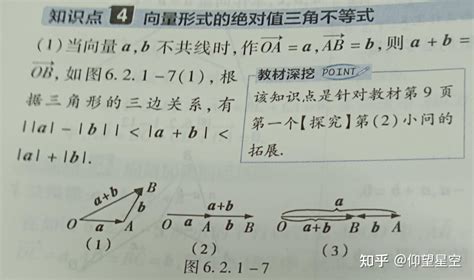 知识点 4 向量形式的绝对值三角不等式
(1)当向量a,b不共线时,作OA=a,AB=b,则a+b=
OB,如图6.2.1-7(1),根
据三角形的三边关系,有
||a|-|b||<|a+b|<
|a|+|b|.
教材深挖 POINT
该知识点是针对教材第9页
第一个【探究】第(2)小问的
拓展.
a+b B
b
O a A
(1)
a+b
O a A b B
(2)
a
O a+b B b A
(3)
图6.2.1-7
知乎 @仰望星空